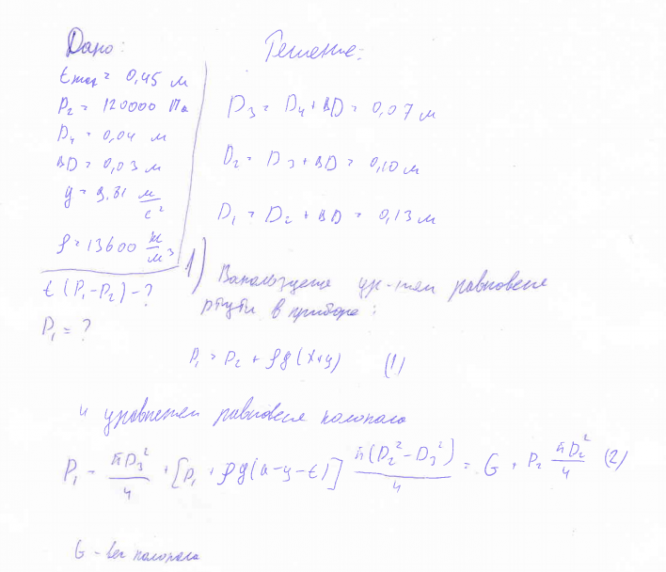 Дано:
Решение:
t max = 0,45 м
P₂ = 120000 Па
D₄ = 0,04 м
ΔD = 0,03 м
g = 9.81 м/с²
ρ = 13600 кг/м³
t (P₁-P₂) - ?
P₁ = ?
D₃ = D₄ + ΔD = 0,07 м
D₂ = D₃ + ΔD = 0,10 м
D₁ = D₂ + ΔD = 0,13 м
1) ур-нием равновесия
ртути в приборе:
P₁ = P₂ + ρg(x+y) (1)
и уравнением равновесия колокола
P₁ - πD₃²/4 + [P₁ + ρg(a-y-t)] π(D₂²-D₃²)/4 = G + P₂ πD₂²/4 (2)
G - вес колокола